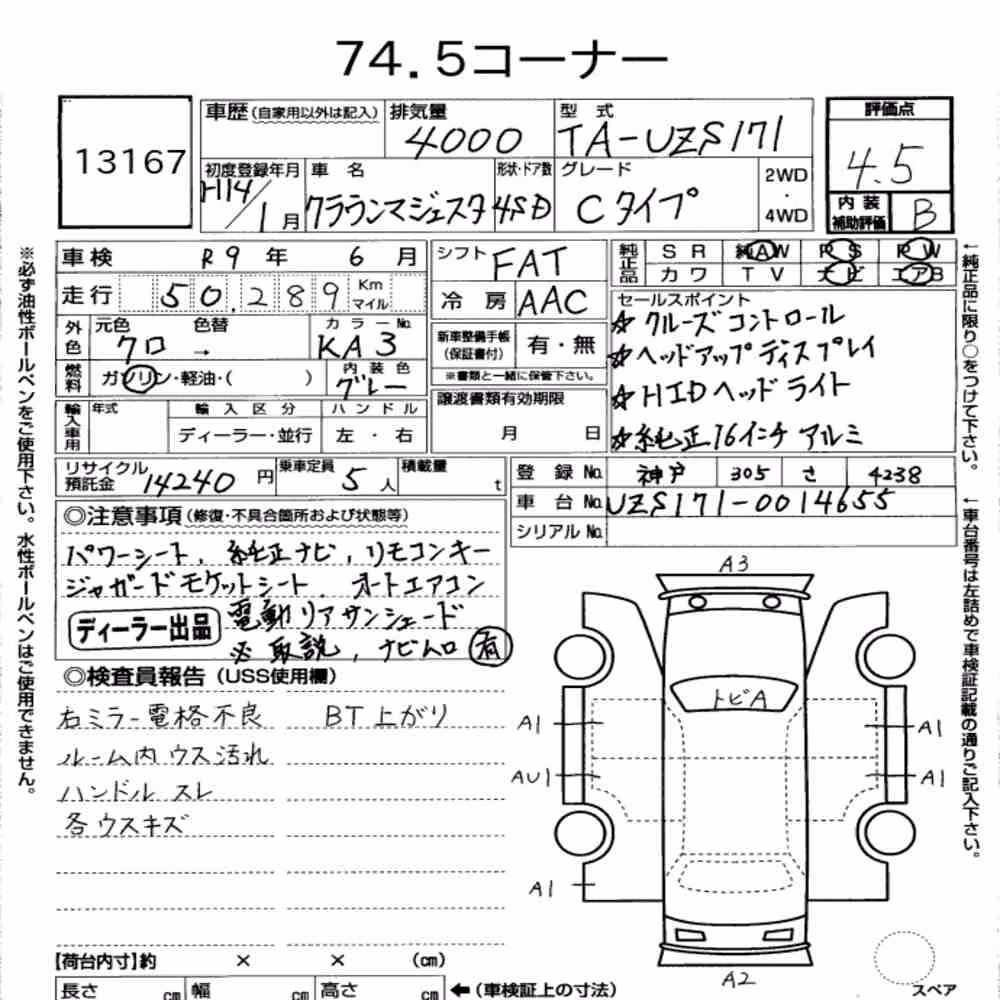 74.5コーナー
13167
車歴(自家用以外は記入) 排気量 4000 型式 TA-UZS171
初度登録年月 H14/1月 車名 クラウンマジェスタ 形状・ドア数 4SD グレード Cタイプ 2WD・4WD
評価点 4.5
内装補助評価 B
車検 R9年 6月 シフト FAT
走行 50,289 Km マイル 冷房 AAC
外色 元色 クロ 色替 → カラーNo. KA3
燃料 ガソリン・軽油・( ) 内装色 グレー
新車整備手帳(保証書付) 有・無
※書類と一緒に保管下さい。
譲渡書類有効期限 月 日
輸入車用 年式 輸入区分 ハンドル
ディーラー・並行 左・右
純正品 SR 純AW PS PW
カワ TV ナビ エアB
セールスポイント
☆クルーズコントロール
☆ヘッドアップディスプレイ
☆HIDヘッドライト
☆純正16インチアルミ
リサイクル預託金 14240円 乗車定員 5人 積載量 t
登録No. 神戸 305 さ 4238
車台No. UZS171-0014655
シリアルNo.
◎注意事項(修復・不具合箇所および状態等)
パワーシート、純正ナビ、リモコンキー
ジャガードモケットシート、オートエアコン
ディーラー出品 電動リアサンシェード
※取説、ナビロム有
◎検査員報告(USS使用欄)
右ミラー電格不良 BT上がり
ルーム内ウス汚れ
ハンドルスレ
各ウスキズ
A3
トビA
A1 A1
AU1 A1
A1
A2
スペア
【荷台内寸】約 × × (cm)
長さ cm 幅 cm 高さ cm ←(車検証上の寸法)
※必ず油性ボールペンをご使用下さい。水性ボールペンはご使用できません。
←純正品に限り○をつけて下さい。
←車台番号は左詰めで車検証記載の通りご記入下さい。